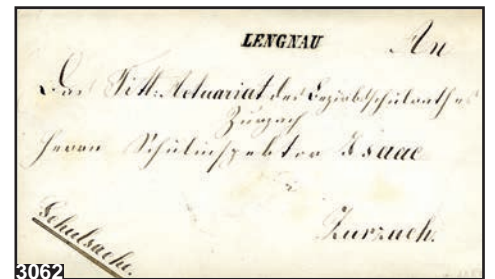 LENGNAU
An
Das Titt. Actuariat des Bezirksschulrathes
Zurzach
Herrn Schulinspektor Isaac
Zurzach.
Schulsache.
3062